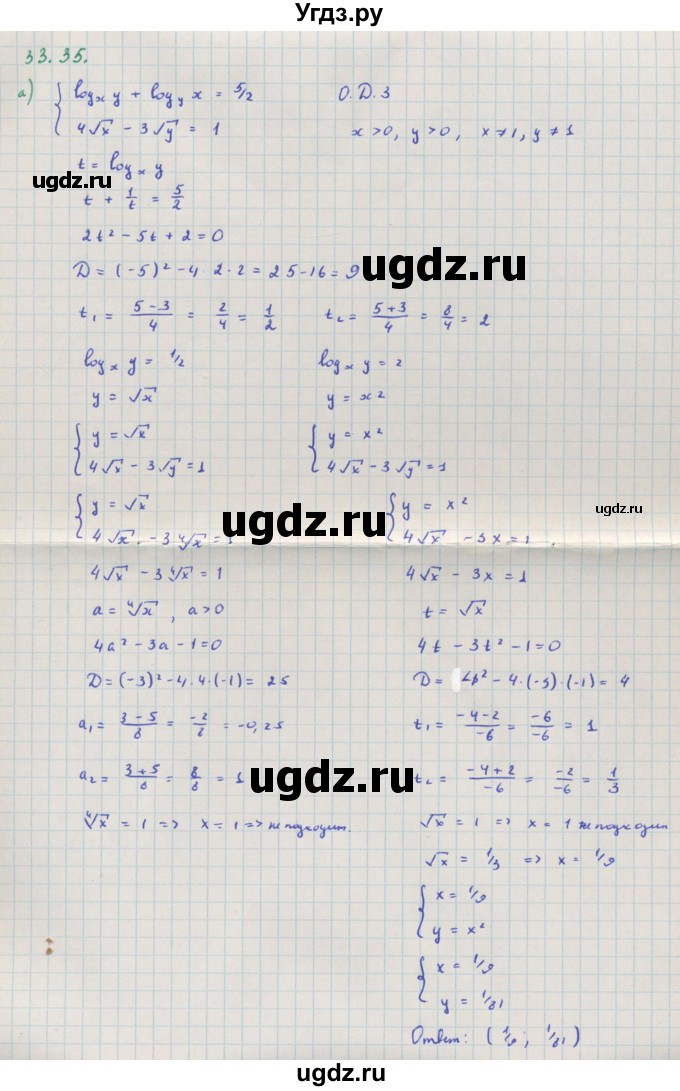 Угдз.ру
33.35.
а) { logₓ y + log_y x = 5/2
4√x − 3√y = 1
О.Д.З
x > 0, y > 0, x ≠ 1, y ≠ 1
t = logₓ y
ugdz.ru
t + 1/t = 5/2
2t² − 5t + 2 = 0
ugdz.ru
D = (−5)² − 4 · 2 · 2 = 25 − 16 = 9
t₁ = (5 − 3)/4 = 2/4 = 1/2
t₂ = (5 + 3)/4 = 8/4 = 2
logₓ y = 1/2
logₓ y = 2
y = √x
y = x²
{ y = √x
4√x − 3√y = 1
{ y = x²
4√x − 3√y = 1
{ y = √x
4√x − 3⁴√x = 1
{ y = x²
4√x − 3x = 1
ugdz.ru
ugdz.ru
4√x − 3⁴√x = 1
4√x − 3x = 1
a = ⁴√x , a > 0
t = √x
4a² − 3a − 1 = 0
4t − 3t² − 1 = 0
D = (−3)² − 4 · 4 · (−1) = 25
D = 4² − 4 · (−3) · (−1) = 4
a₁ = (3 − 5)/8 = −2/8 = −0,25
t₁ = (−4 − 2)/−6 = −6/−6 = 1
ugdz.ru
ugdz.ru
a₂ = (3 + 5)/8 = 8/8 = 1
t₂ = (−4 + 2)/−6 = −2/−6 = 1/3
⁴√x = 1 => x = 1 => не подходит.
√x = 1 => x = 1 не подходит
√x = 1/3 => x = 1/9
{ x = 1/9
y = x²
ugdz.ru
{ x = 1/9
y = 1/81
Ответ: (1/9; 1/81)